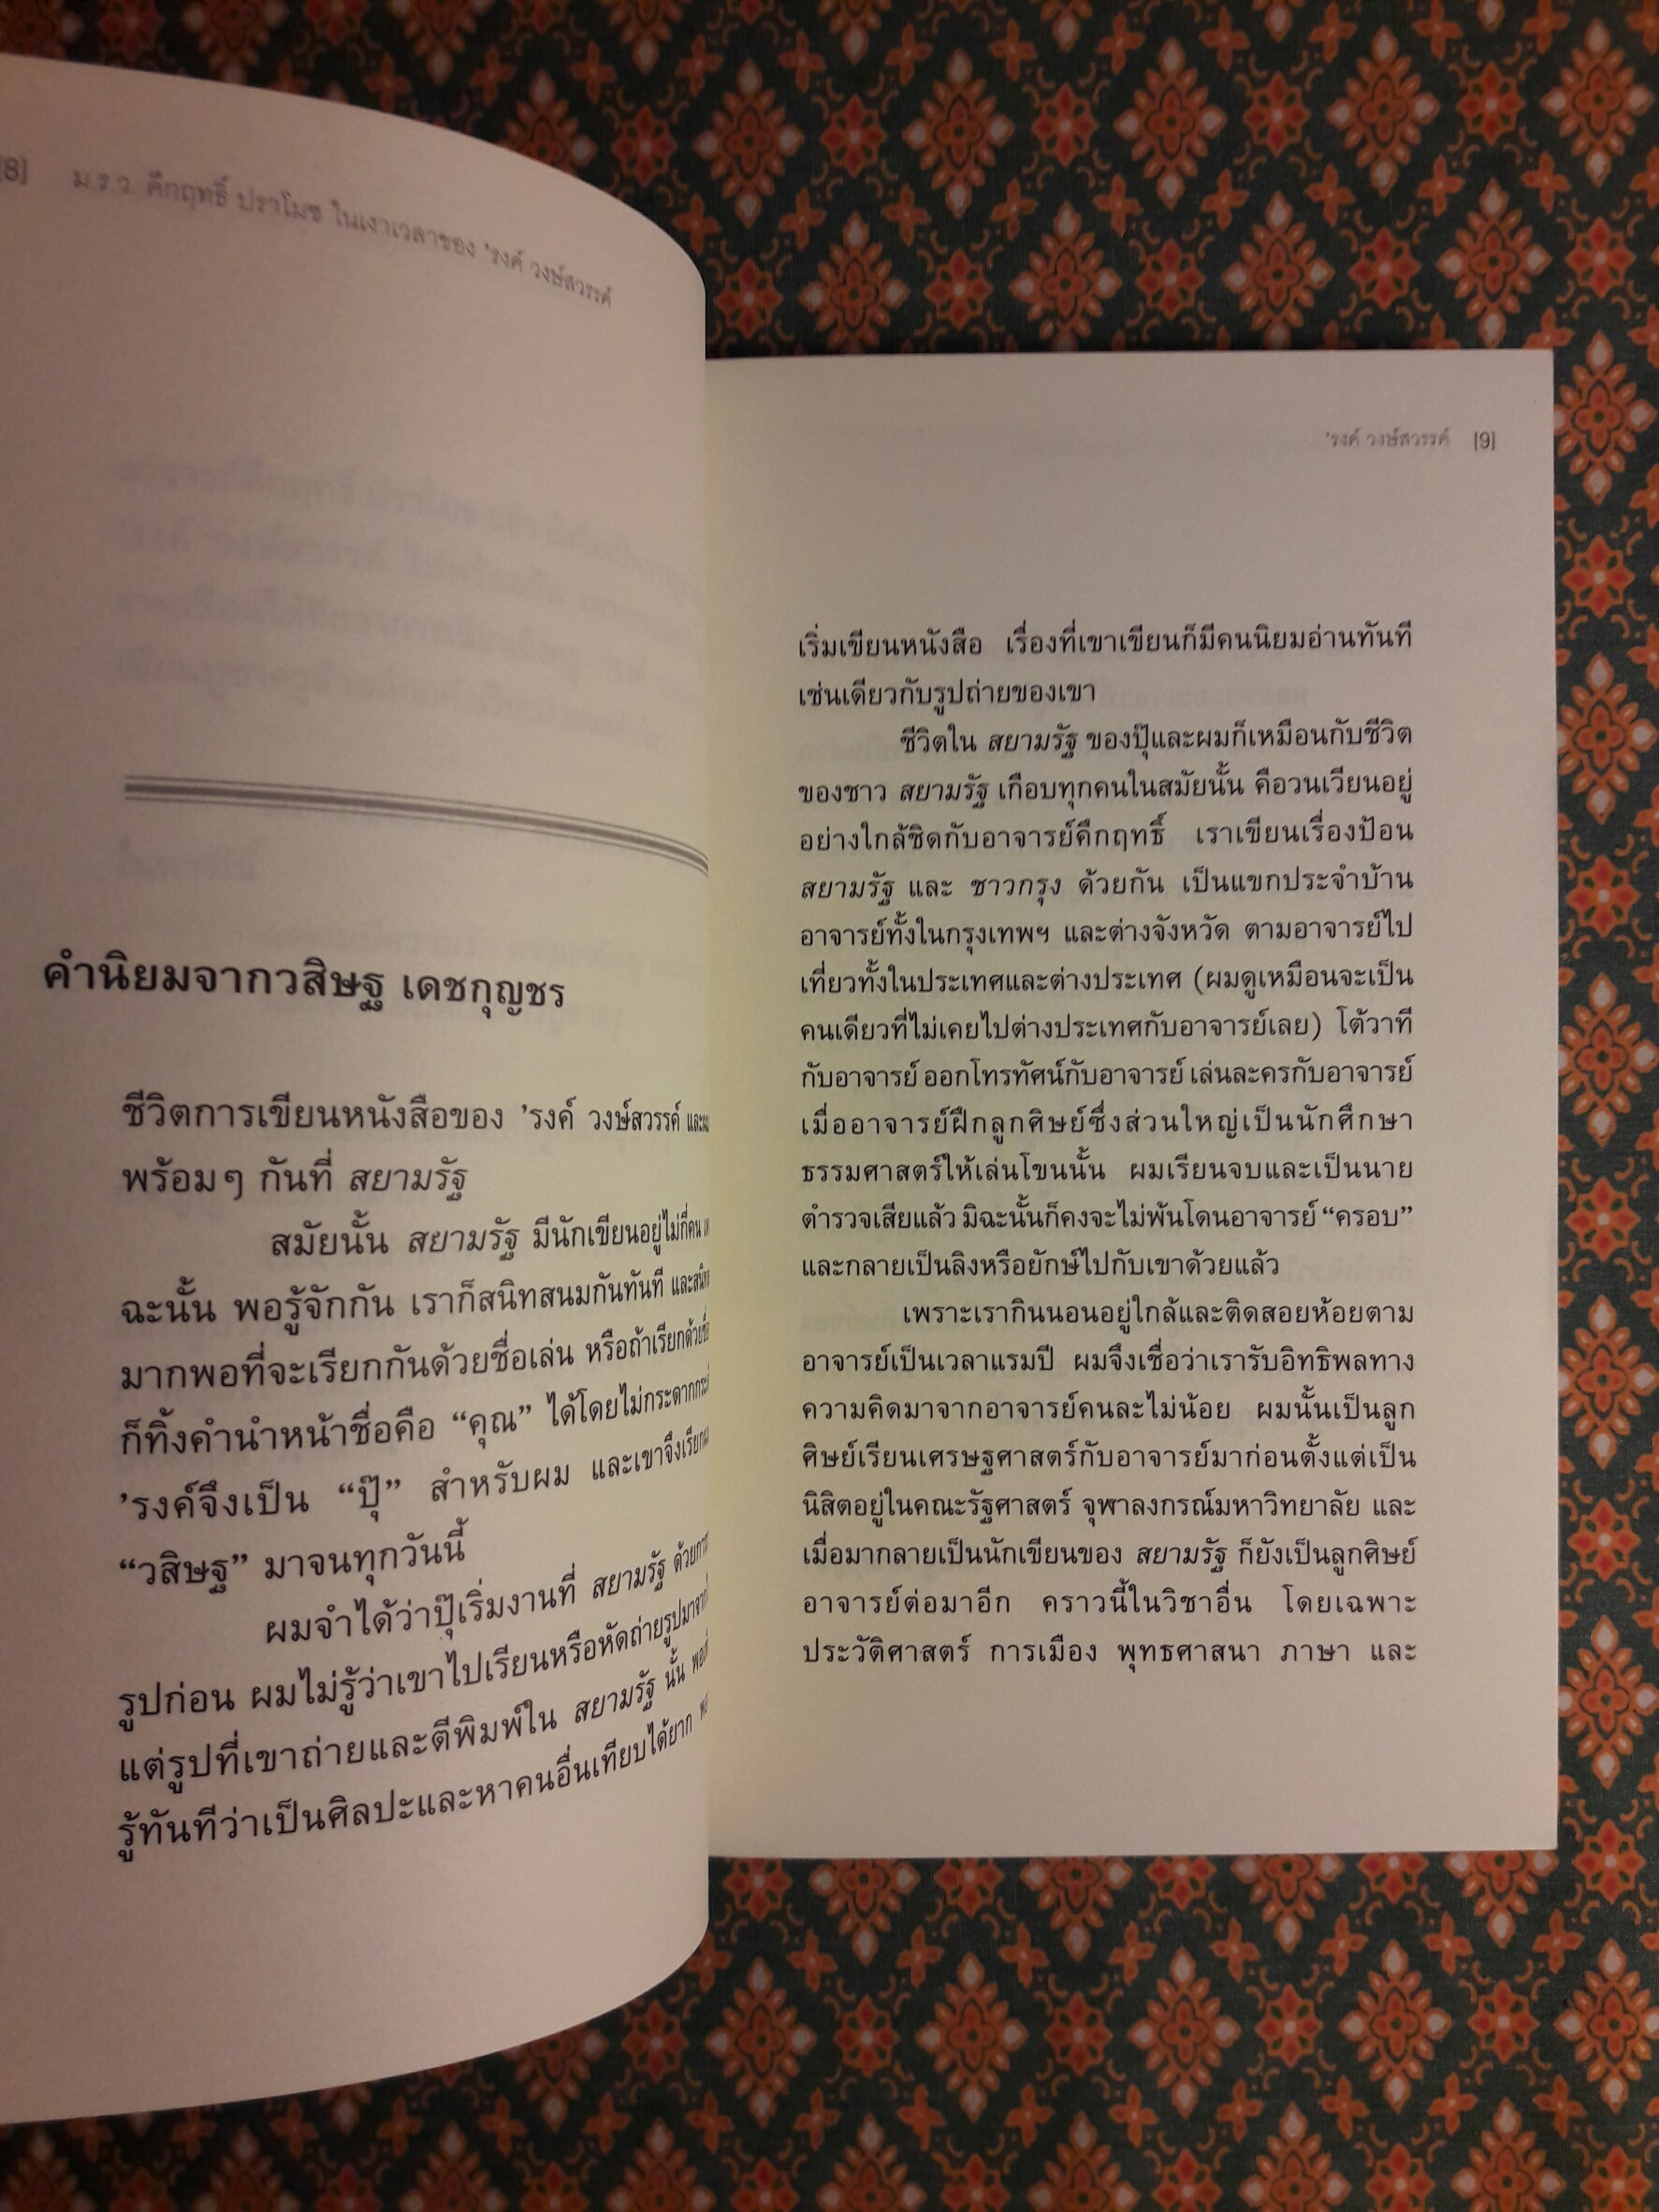 [8] ม.ร.ว. คึกฤทธิ์ ปราโมช ในเงาเวลาของ 'รงค์ วงษ์สวรรค์
คำนิยมจากวสิษฐ เดชกุญชร
ชีวิตการเขียนหนังสือของ 'รงค์ วงษ์สวรรค์ และผม
พร้อมๆ กันที่ สยามรัฐ
สมัยนั้น สยามรัฐ มีนักเขียนอยู่ไม่กี่คน
ฉะนั้น พอรู้จักกัน เราก็สนิทสนมกันทันที
มากพอที่จะเรียกกันด้วยชื่อเล่น หรือถ้าเรียกด้วย
ก็ทิ้งคำนำหน้าชื่อคือ “คุณ” ได้โดยไม่กระดาก
'รงค์จึงเป็น “ปุ๊” สำหรับผม และเขาจึงเรียก
“วสิษฐ” มาจนทุกวันนี้
ผมจำได้ว่าปุ๊เริ่มงานที่ สยามรัฐ ด้วย
รูปก่อน ผมไม่รู้ว่าเขาไปเรียนหรือหัดถ่ายรูปมา
แต่รูปที่เขาถ่ายและตีพิมพ์ใน สยามรัฐ นั้น
รู้ทันทีว่าเป็นศิลปะและหาคนอื่นเทียบได้ยาก
'รงค์ วงษ์สวรรค์ [9]
เริ่มเขียนหนังสือ เรื่องที่เขาเขียนก็มีคนนิยมอ่านทันที
เช่นเดียวกับรูปถ่ายของเขา
ชีวิตใน สยามรัฐ ของปุ๊และผมก็เหมือนกับชีวิต
ของชาว สยามรัฐ เกือบทุกคนในสมัยนั้น คือวนเวียนอยู่
อย่างใกล้ชิดกับอาจารย์คึกฤทธิ์ เราเขียนเรื่องป้อน
สยามรัฐ และ ชาวกรุง ด้วยกัน เป็นแขกประจำบ้าน
อาจารย์ทั้งในกรุงเทพฯ และต่างจังหวัด ตามอาจารย์ไป
เที่ยวทั้งในประเทศและต่างประเทศ (ผมดูเหมือนจะเป็น
คนเดียวที่ไม่เคยไปต่างประเทศกับอาจารย์เลย) โต้วาที
กับอาจารย์ ออกโทรทัศน์กับอาจารย์ เล่นละครกับอาจารย์
เมื่ออาจารย์ฝึกลูกศิษย์ซึ่งส่วนใหญ่เป็นนักศึกษา
ธรรมศาสตร์ให้เล่นโขนนั้น ผมเรียนจบและเป็นนาย
ตำรวจเสียแล้ว มิฉะนั้นก็คงจะไม่พ้นโดนอาจารย์ “ครอบ”
และกลายเป็นลิงหรือยักษ์ไปกับเขาด้วยแล้ว
เพราะเรากินนอนอยู่ใกล้และติดสอยห้อยตาม
อาจารย์เป็นเวลาแรมปี ผมจึงเชื่อว่าเรารับอิทธิพลทาง
ความคิดมาจากอาจารย์คนละไม่น้อย ผมนั้นเป็นลูก
ศิษย์เรียนเศรษฐศาสตร์กับอาจารย์มาก่อนตั้งแต่เป็น
นิสิตอยู่ในคณะรัฐศาสตร์ จุฬาลงกรณ์มหาวิทยาลัย และ
เมื่อมากลายเป็นนักเขียนของ สยามรัฐ ก็ยังเป็นลูกศิษย์
อาจารย์ต่อมาอีก คราวนี้ในวิชาอื่น โดยเฉพาะ
ประวัติศาสตร์ การเมือง พุทธศาสนา ภาษา และ